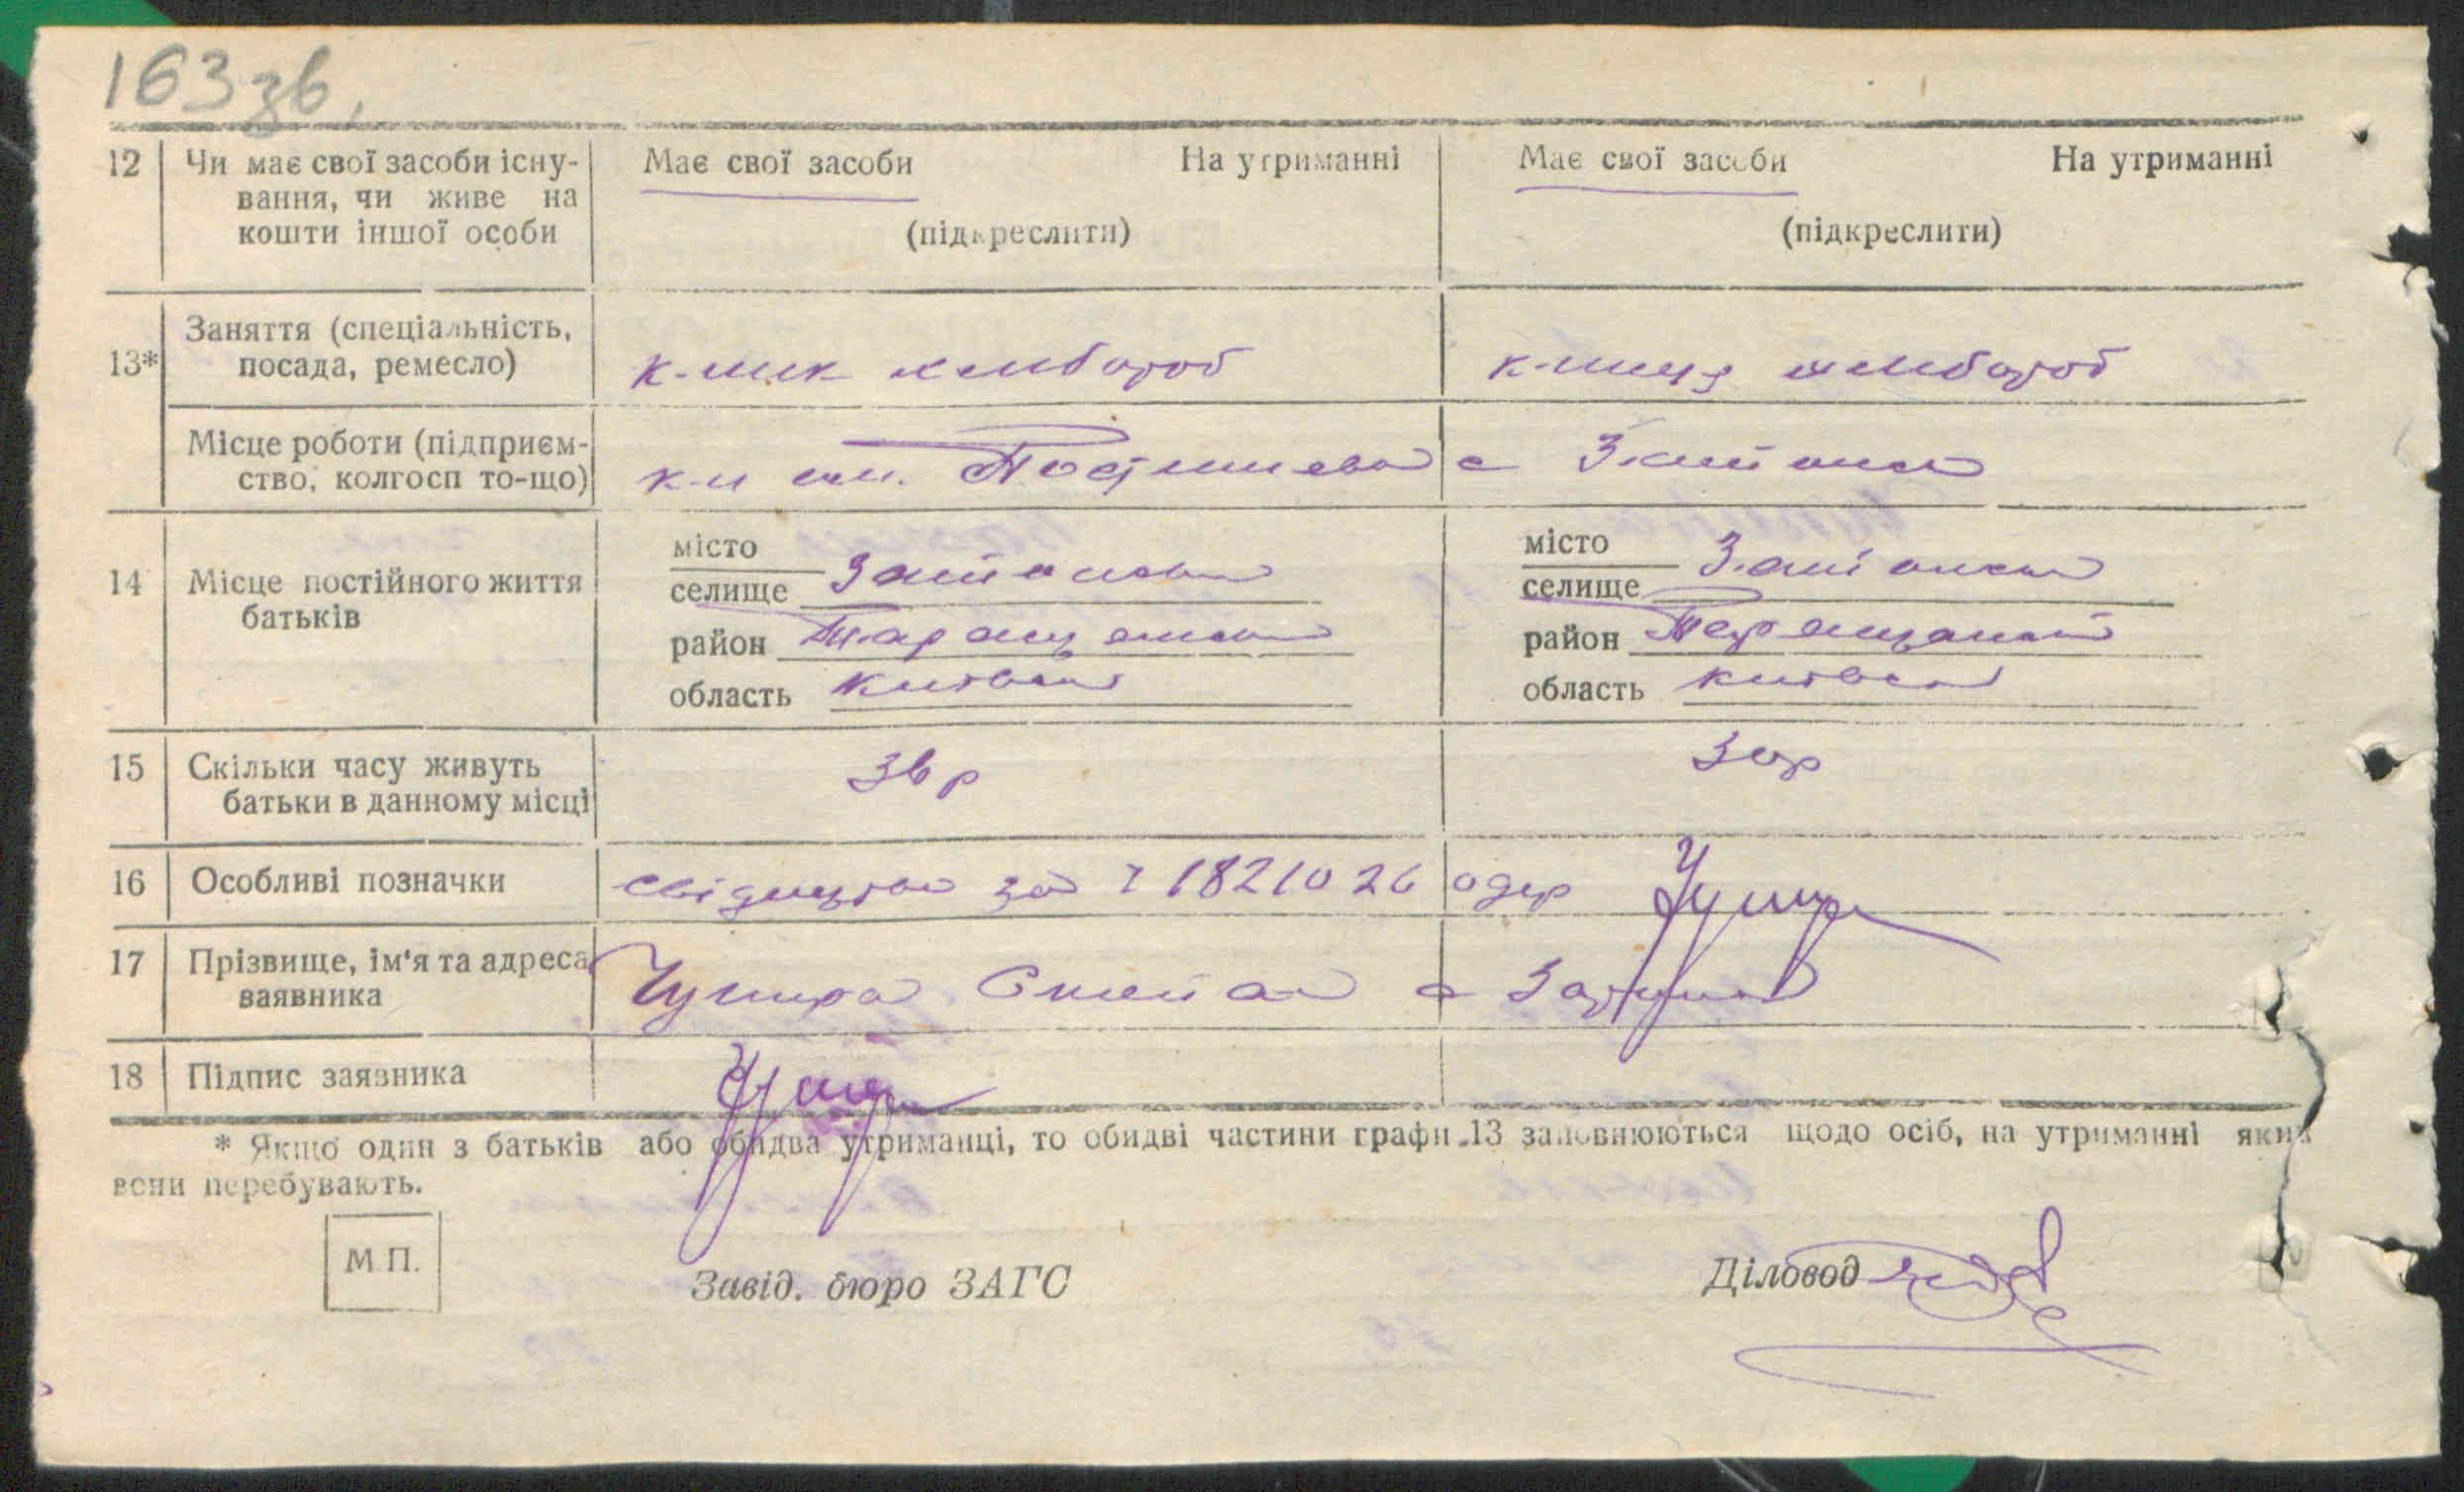 163 зв.
12 Чи має свої засоби існу- Має свої засоби На утриманні Має свої засоби На утриманні
вання, чи живе на
кошти іншої особи (підкреслити) (підкреслити)
Заняття (спеціальність,
13* посада, ремесло) к-ник хлібороб к-ниця хлібороб
Місце роботи (підприєм-
ство, колгосп то-що) к-п им. Постишева с
місто місто
селище селище
14 Місце постійного життя
батьків
район Таращанськ район Таращанськ
область київська область київська
15 Скільки часу живуть
батьки в данному місці
16 Особливі позначки свідоцтво за № 1821026 одер
17 Прізвище, ім'я та адреса
заявника
18 Підпис заявника
* Якщо один з батьків або обидва утриманці, то обидві частини графи 13 заповнюються щодо осіб, на утриманні яких
вони перебувають.
М.П.
Завід. бюро ЗАГС Діловод